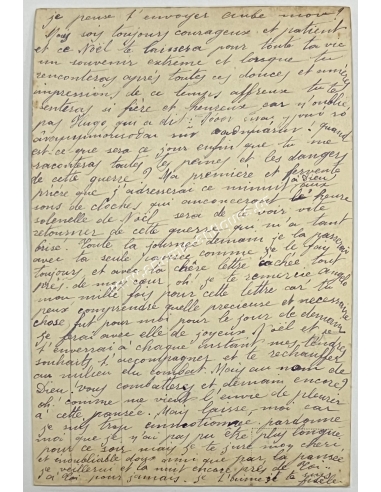 je peux t'envoyer
sois toujours courageux et patient
et ce Noël te laissera pour toute la vie
un souvenir extrême et lorsque tu
raconteras après toutes ces douces et
impressions de ce temps affreux tu te
sentiras si fière et heureux car n'oublie
pas Hugo qui a dit :
quand
est-ce que sera ce jour enfin que tu me
raconteras toutes les peines et les dangers
de cette guerre? Ma première et fervente
prière que j'adresserai ce minuit à Dieu
de cloches qui annonceront l'heure
solenelle de Noël sera de voir vite
retourner de cette guerre qui m'a tant
brisé. Toute la journée demain je la passerai
avec la seule pensée comme je le fais
toujours et avec la chère lettre cachée tout
près de mon cœur. oh! je te remercie
mon mille fois pour cette lettre car tu
peux comprendre quelle precieuse et necessaire
chose fut pour moi pour le jour de demain
Je ferai avec elle de joyeux Noël et
t'enverrai à chaque instant mes tendres
souhaits t'accompagner et te rechauffer
au milieu du combat. Mais au nom de
Dieu vous combattez et demain encore?
oh! comme me vient l'envie de pleurer
à cette pensée. Mais laisse moi car
je suis trop emotionnée pardonne
moi que je n'ai pas pu être plus longue
pour ce soir mais je te jure mon cher
et inoubliable doux ami que par la pensée
je veillerai et la nuit encore près de Toi.
à Toi pour jamais. je